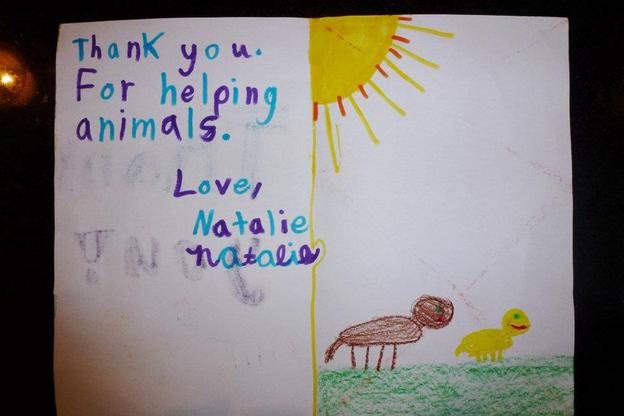 Thank you.
For helping
animals.
Love,
Natalie
natalie